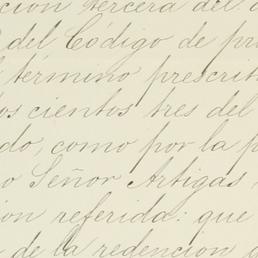 cion tercera del
del Código de pr
término prescrit
os cientos tres del
do, como por la p
o Señor Artigas
ion referida: que
de la redencion